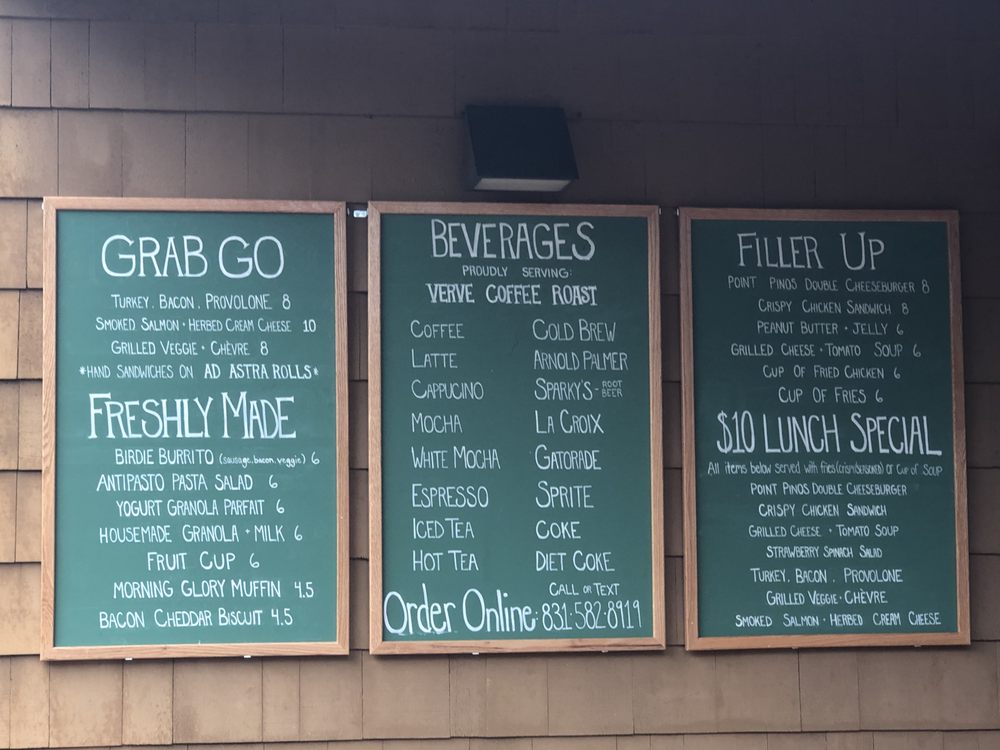 GRAB GO
TURKEY. BACON. PROVOLONE 8
SMOKED SALMON · HERBED CREAM CHEESE 10
GRILLED VEGGIE · CHÈVRE 8
*HAND SANDWICHES ON AD ASTRA ROLLS*
FRESHLY MADE
BIRDIE BURRITO (sausage.bacon.veggie) 6
ANTIPASTO PASTA SALAD 6
YOGURT GRANOLA PARFAIT 6
HOUSEMADE GRANOLA + MILK 6
FRUIT CUP 6
MORNING GLORY MUFFIN 4.5
BACON CHEDDAR BISCUIT 4.5
BEVERAGES
PROUDLY SERVING:
VERVE COFFEE ROAST
COFFEE
LATTE
CAPPUCINO
MOCHA
WHITE MOCHA
ESPRESSO
ICED TEA
HOT TEA
COLD BREW
ARNOLD PALMER
SPARKY'S - ROOT BEER
LA CROIX
GATORADE
SPRITE
COKE
DIET COKE
CALL OR TEXT
Order Online: 831·582·8919
FILLER UP
POINT PINOS DOUBLE CHEESEBURGER 8
CRISPY CHICKEN SANDWICH 8
PEANUT BUTTER + JELLY 6
GRILLED CHEESE + TOMATO SOUP 6
CUP OF FRIED CHICKEN 6
CUP OF FRIES 6
$10 LUNCH SPECIAL
All items below served with fries (crispy/seasoned) or cup of soup
POINT PINOS DOUBLE CHEESEBURGER
CRISPY CHICKEN SANDWICH
GRILLED CHEESE + TOMATO SOUP
STRAWBERRY SPINACH SALAD
TURKEY. BACON. PROVOLONE
GRILLED VEGGIE · CHÈVRE
SMOKED SALMON · HERBED CREAM CHEESE